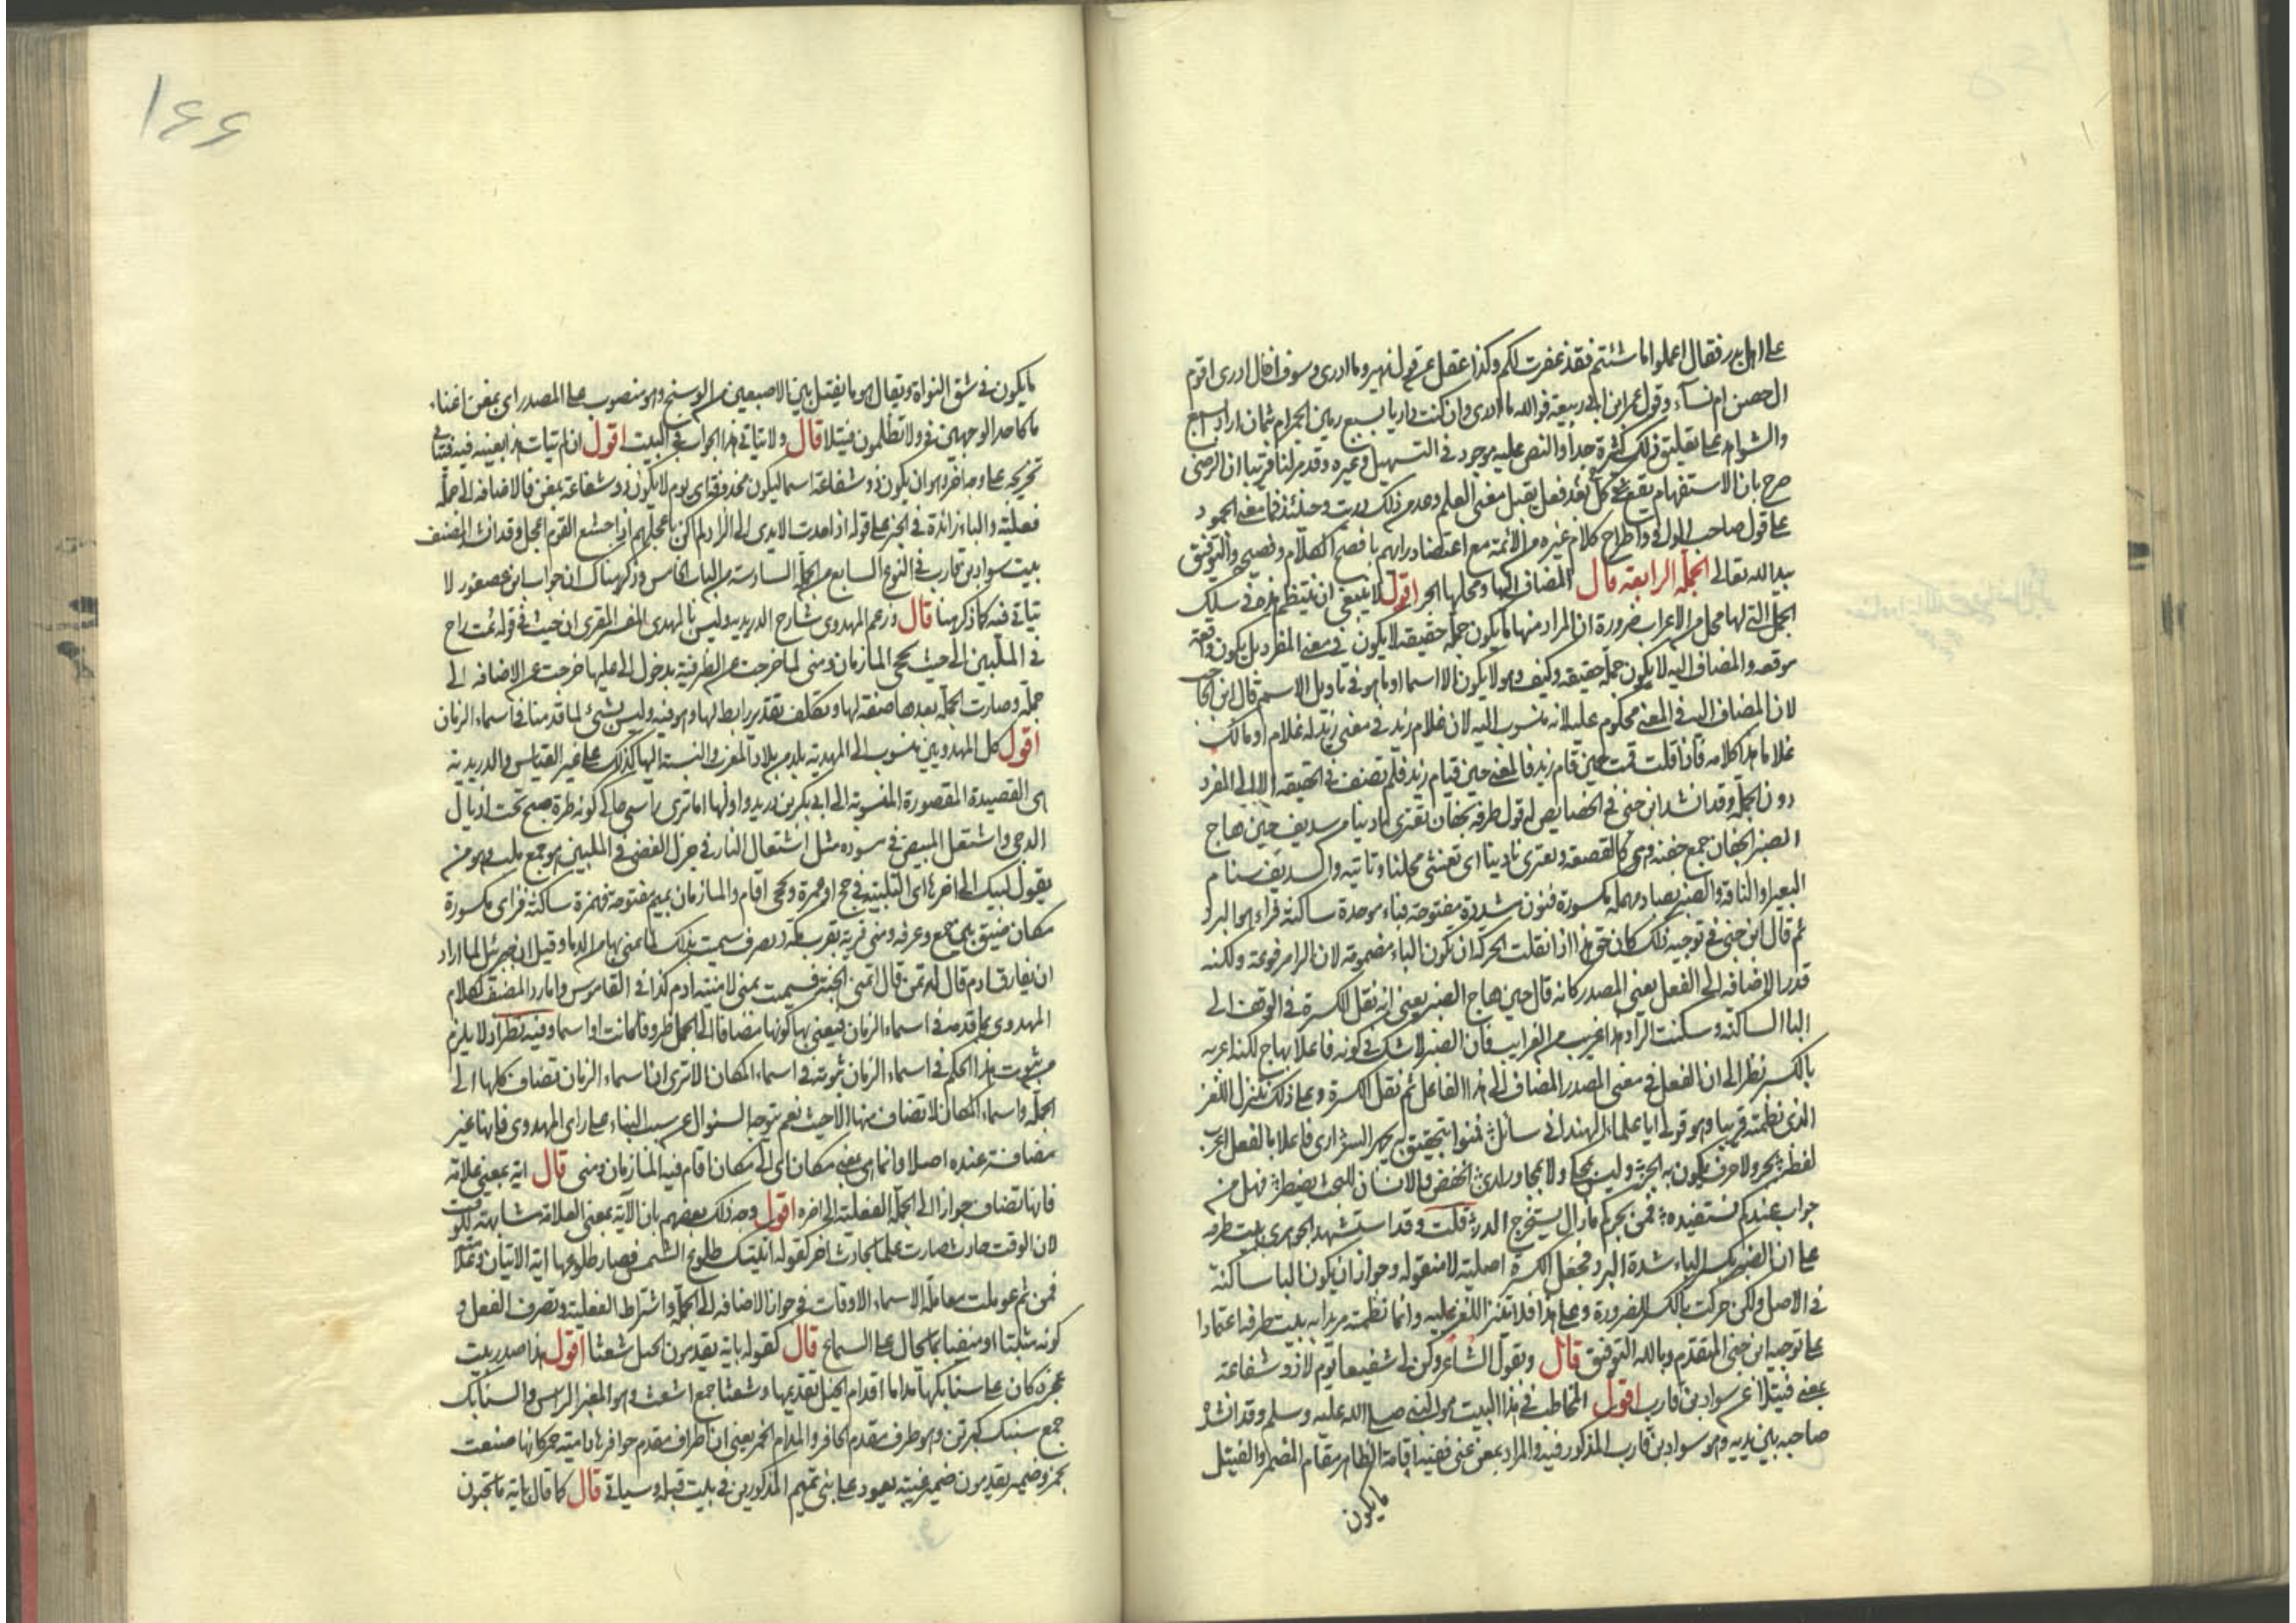 على اهل بدر فقال اعملوا ما شئتم فقد غفرت لكم وكذا عقل عن قول زهير وما ادرى وسوف اخال ادرى اقوم
ال حصن ام نساء وقول عمر ابن ابى ربيعة فوالله ما ادرى وان كنت داريا بسبع رمين الجمر ام بثمان اراد ابسبع
والشواهد على تعليق ذلك كثيرة جدا والنص عليه موجود فى التسهيل وغيره وقد مر لنا قريبا ان الرضى
صرح بان الاستفهام يقع بعد كل فعل يقبل معنى العلم وعد من ذلك دريت وحينئذ فما معنى الجمود
على قول صاحب واطراح كلام غيره من الائمة مع اعتضاد رايهم بافصح الكلام وفصيحه والتوفيق
بيد الله تعالى الجملة الرابعة قال المضاف اليها ومحلها الجر اقول لا ينبغى ان ينتظم هذه فى سلك
الجمل التى لها محل من الاعراب ضرورة ان المراد منها ما يكون جملة حقيقة لا يكون فى معنى المفرد بل يكون واقعة
موقعه والمضاف اليه لا يكون جملة حقيقة وكيف وهو لا يكون الا اسما او ما هو فى تاويل الاسم قال ابن الحاجب
لان المضاف اليه فى المعنى محكوم عليه لانه منسوب اليه لان غلام زيد فى معنى زيد له غلام او مالك
غلاما هذا كلامه فاذا قلت قمت حين قام زيد فالمعنى حين قيام زيد فلم تضف فى الحقيقة الا الى المفرد
دون الجملة وقد انشد ابن جنى فى الخصايص لم قول طرفه بجفان تعترى نادينا من سديف حين هاج
الصنبر الجفان جمع جفنه وهى كالقصعه وتعترى نادينا اى تغشى محلنا وتاتيه والسديف سنام
البعير او الناقة والصنبر بصاد مهملة مكسورة فنون مشددة مفتوحة فباء موحدة ساكنة فراء هو البرد
ثم قال ابن جنى فى توجيه ذلك كان حق هذا اذا نقلت الحركة ان يكون الباء مضمومة لان الرا مرفوعة ولكنه
قدر الاضافة الى الفعل يعنى المصدر كانه قال حين هاج الصنبر يعنى انه نقل الكسرة فى الوقف الى
البا الساكنة وسكنت الراء وهذا غريب من الغرايب فان الصنبر لا شك فى كونه فاعلا بهاج لكنه اعربه
بالكسر نظرا الى ان الفعل فى معنى المصدر المضاف الى هذا الفاعل ثم نقل الكسرة وعلى ذلك يتنزل اللغز
الذى نظمته قريبا وهو قولى ايا علماء الهند انى سائل فمنوا بتحقيق به يظهر السر ارى فاعلا بالفعل اعرب
لفظه بجر ولا حرف يكون به الجر وليس بمحكى ولا بمجاور لدى الخفض والانسان للبحث يضطر فهل من
جواب عندكم نستفيده فمن بحركم ما زال يستخرج الدر قلت وقد استشهد الجوهرى ببيت طرفه
على ان الصنبر بكسر الباء شدة البرد فجعل الكسرة اصلية لا منقوله وجوز ان يكون البا ساكنة
فى الاصل ولكن حركت بالكسر للضرورة وعلى هذا فلا يتنزل اللغز عليه وانما نظمته مريدا به بيت طرفه اعتمادا
على توجيه ابن جنى المتقدم وبالله التوفيق قال وبقول الشاعر وكن لى شفيعا يوم لا ذو شفاعة
بمغن فتيلا عن سواد بن قارب اقول المخاطب فى هذا البيت هو النبى صلى الله عليه وسلم وقد انشده
صاحبه بين يديه وهو سواد بن قارب المذكور فيه والمراد بمغن عنى ففيه اقامة الظاهر مقام المضمر والفتيل
ما يكون
١٤٤
ما يكون فى شق النواة ويقال هو ما يفتل بين الاصبعين من الوسخ وهو منصوب على المصدر اى بمغن اغناء
ما كاحد الوجهين فى ولا تظلمون فتيلا قال ولا يتاتى هذا الجواب فى البيت اقول ان لم يتات هذا بعينه فيه فيتاتى
تخريجه على وجه اخر وهو ان يكون ذو شفاعة اسما ليكون محذوفة اى يوم لا يكون ذو شفاعة بمغن فالاضافة الى جملة
فعلية والباء زائدة فى الخبر على قوله اذا مدت الايدى الى الزاد لم اكن باعجلهم اذ اجشع القوم اعجل وقد انشد المصنف
بيت سواد بن قارب فى النوع السابع من الجملة السادسة من الباب الخامس وذكر هناك ان جواب ابن عصفور لا
يتاتى فيه كما ذكر هنا قال وزعم المهدوى شارح الدريديه وليس بالمهدوى المفسر المقرى ان حيث فى قوله ثمت راح
فى الملبين الى حيث تحجى المازمان ومنى لما خرجت عن الظرفية بدخول الى عليها خرجت عن الاضافه الى
جملة وصارت الجملة بعدها صفة لها وتكلف تقدير رابط لها وهو فيه وليس بشئ لما قدمنا فى اسماء الزمان
اقول كل المهدويين منسوب الى المهدية بلد من بلاد المغرب والنسبة اليها كذلك على غير القياس والدريدية
هى القصيدة المقصورة المنسوبة الى ابى بكر بن دريد واولها اما ترى راسى حاكى لونه طرة صبح تحت اذيال
الدجى واشتعل المبيض فى مسوده مثل اشتعال النار فى جزل الغضى فى الملبين هو جمع ملب وهو من
يقول لبيك الى اخرها اى التلبية فى حج او عمرة وتحجى اقام والمازمان بميم مفتوحة فهمزة ساكنة فزاى مكسورة
مكان مضيق بين جمع وعرفه ومنى قرية بقرب مكة ويصرف سميت بذلك لما يمنى بها من الدماء وقيل ان جبرئيل لما اراد
ان يفارق ادم قال له تمن قال اتمنى الجنة فسميت بمنى لامنية ادم كذا فى القاموس واما رد المصنف كلام
المهدوى بما قدمه فى اسماء الزمان فيعنى بها كونها مضافا الى الجمل ظروفا كانت او اسما وفيه نظر اذ لا يلزم
من ثبوت هذا الحكم فى اسماء الزمان ثبوته فى اسماء المكان الا ترى ان اسماء الزمان تضاف كلها الى
الجملة واسماء المكان لا تضاف منها الا حيث نعم يتوجه السئوال عن سبب البناء على راى المهدوى فانها غير
مضافة عنده اصلا وانما هى بمعنى مكان اى الى مكان اقام فيه المازمان ومنى قال اية بمعنى علامة
فانها تضاف جوازا الى الجملة الفعلية الى اخره اقول وجه ذلك بعضهم بان الآية بمعنى العلامة مشابهة للوقت
لان الوقت حادث صارت علما لحادث اخر كقوله اتيتك طلوع الشمس فصار طلوعها اية الاتيان وعلامته
فمن ثم عوملت معاملة الاسماء الاوقات فى جواز الاضافه الى الجملة واشتراط الفعلية وتصرف الفعل و
كونه مثبتا او منفيا بما يحال على السماع قال كقوله باية يقدمون الخيل شعثا اقول هذا صدر بيت
عجزه كان على سنابكها مداما اقدام الخيل تقديمها وشعثا جمع اشعث وهو المغبر الراس والسنابك
جمع سنبك كبرثن وهو طرف مقدم الحافر والمدام الخمر يعنى ان اطراف مقدم حوافرها دامية حمر كانها صبغت
بخمر وضمير يقدمون ضمير غيبة يعود على بنى تميم المذكورين فى بيت قبله وسياتى قال كما قال باية ما تحبون